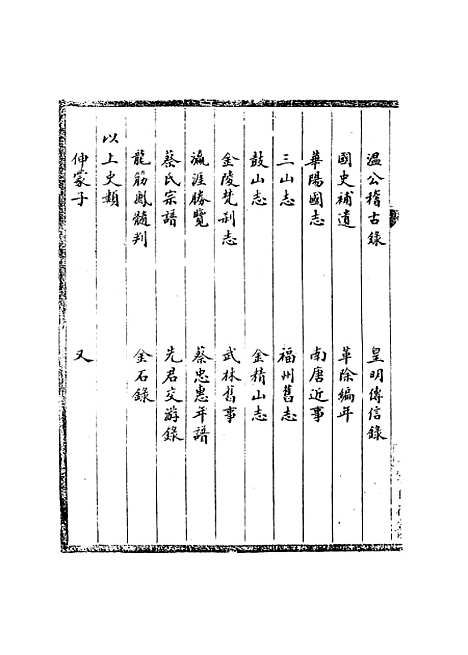 温公稽古錄　皇明傳信錄
國史補遺　革除編年
華陽國志　南唐近事
三山志　福州舊志
鼓山志　金精山志
金陵梵剎志　武林舊事
瀛涯勝覽　蔡忠惠年譜
蔡氏宗譜　先君交游錄
龍筋鳳髓判　金石錄
以上史類
伸蒙子　又